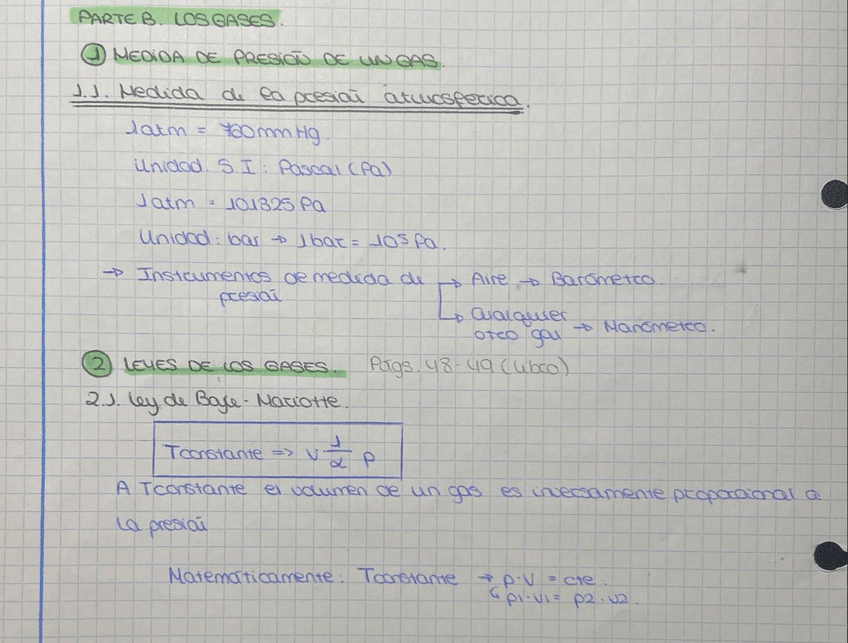 PARTE B. LOS GASES.
① MEDIDA DE PRESIÓN DE UN GAS.
1.1. Medida de la presión atmosférica.
1atm = 760mmHg.
Unidad. S.I: Pascal (Pa)
1atm = 101325 Pa
Unidad: bar → 1bar = 10⁵ Pa.
→ Instrumentos de medida de → Aire → Barómetro.
presión
↳ Cualquier
otro gas → Manómetro.
② LEYES DE LOS GASES. Págs. 48-49 (libro)
2.1. Ley de Boyle-Mariotte.
Tconstante => V 1/α P
A Tconstante el volumen de un gas es inversamente proporcional a
la presión
Matemáticamente: Tconstante → p·V = cte.
↳ p1·V1 = p2·V2